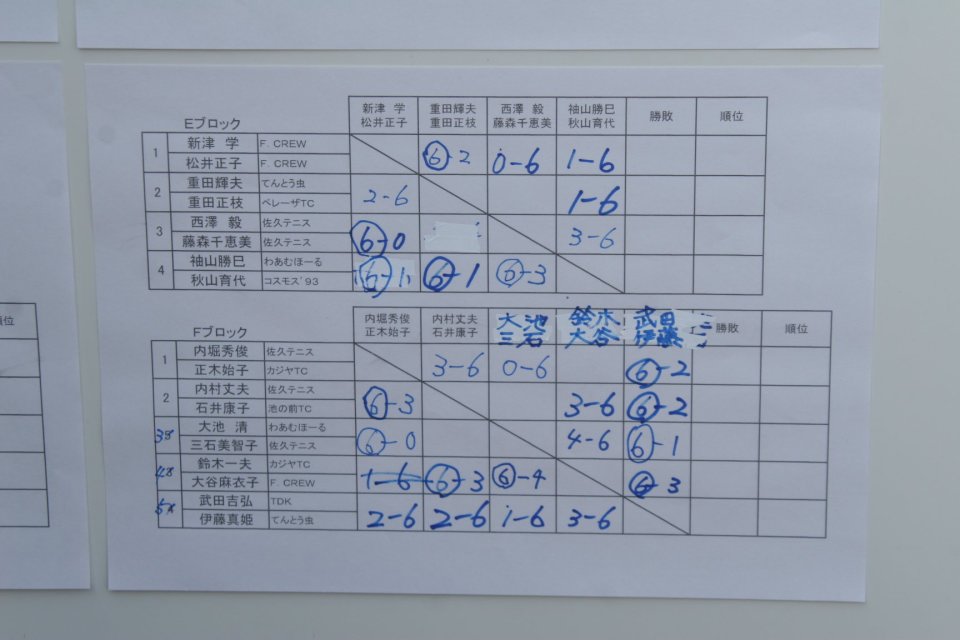 Eブロック
新津 学 重田輝夫 西澤 毅 袖山勝巳 勝敗 順位
松井正子 重田正枝 藤森千恵美 秋山育代
1 新津 学 F. CREW
松井正子 F. CREW
⑥-2 0-6 1-6
2 重田輝夫 てんとう虫
重田正枝 ベレーザTC
2-6 1-6
3 西澤 毅 佐久テニス
藤森千恵美 佐久テニス
⑥-0 3-6
4 袖山勝巳 わあむほーる
秋山育代 コスモス'93
⑥-1 ⑥-1 ⑥-3
順位
Fブロック
内堀秀俊 内村丈夫 大池 鈴木 武田 勝敗 順位
正木始子 石井康子 三石 大谷 伊藤
1 内堀秀俊 佐久テニス
正木始子 カジヤTC
3-6 0-6 ⑥-2
2 内村丈夫 佐久テニス
石井康子 池の前TC
⑥-3 3-6 ⑥-2
3 大池 清 わあむほーる
三石美智子 佐久テニス
⑥-0 4-6 ⑥-1
4 鈴木一夫 カジヤTC
大谷麻衣子 F. CREW
1-6 ⑥-3 ⑥-4 ⑥-3
5 武田吉弘 TDK
伊藤真姫 てんとう虫
2-6 2-6 1-6 3-6